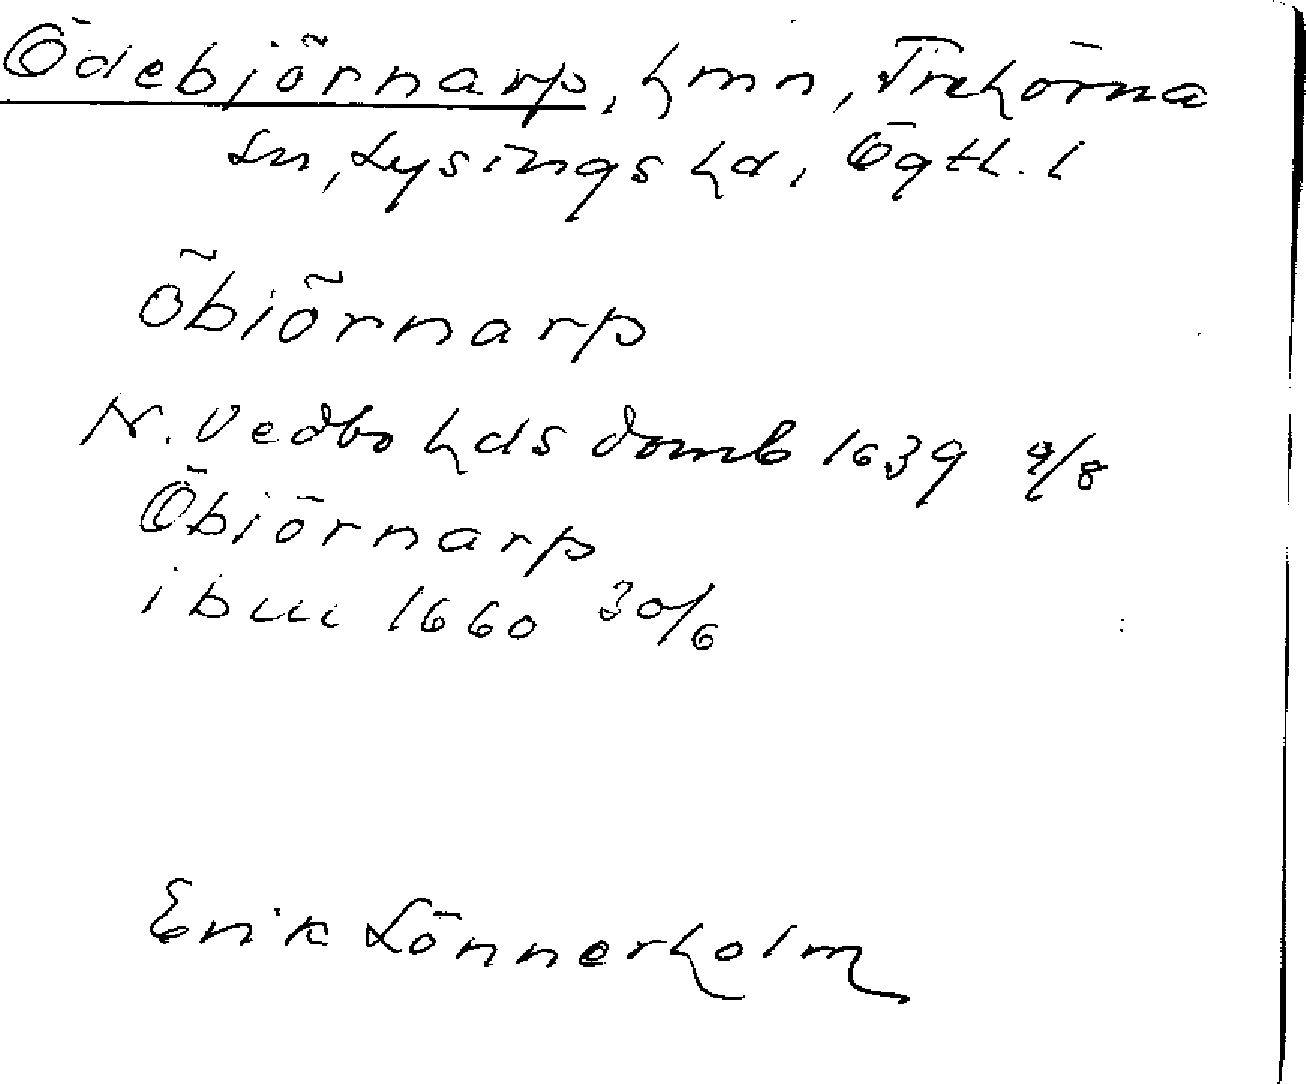 Ödebjörnarp, hmn, Trehörna
sn, Lysings hd, Ögtl. l
Öbiörnarp
N. Vedbo hds domb 1639 9/8
Öbiörnarp
ibm 1660 30/6
Erik Lönnerholm